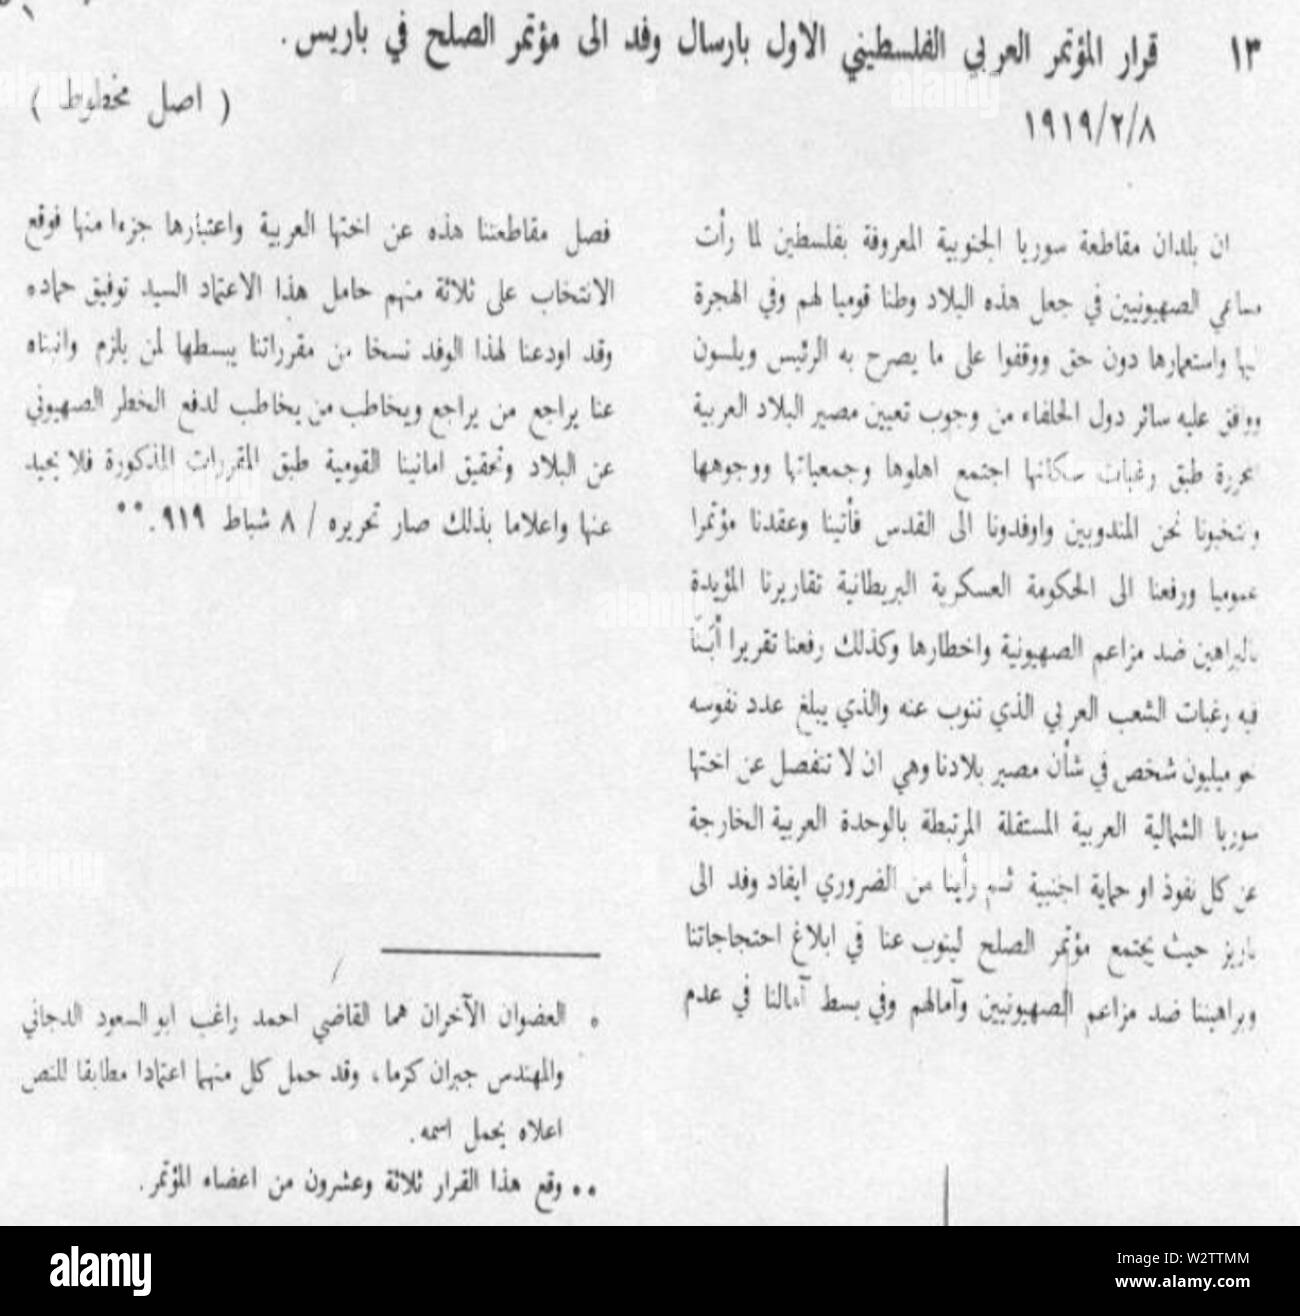 ١٣ قرار المؤتمر العربي الفلسطيني الاول بارسال وفد الى مؤتمر الصلح في باريس.
١٩١٩/٢/٨
( اصل مخطوط )
ان بلدان مقاطعة سوريا الجنوبية المعروفة بفلسطين لما رأت
مساعي الصهيونيين في جعل هذه البلاد وطنا قوميا لهم وفي الهجرة
اليها واستعمارها دون حق ووقفوا على ما يصرح به الرئيس ويلسون
ووافق عليه سائر دول الحلفاء من وجوب تعيين مصير البلاد العربية
المحررة طبق رغبات سكانها اجتمع اهلوها وجمعياتها ووجوهها
وانتخبونا نحن المندوبين واوفدونا الى القدس فأتينا وعقدنا مؤتمرا
عموميا ورفعنا الى الحكومة العسكرية البريطانية تقاريرنا المؤيدة
بالبراهين ضد مزاعم الصهيونية واخطارها وكذلك رفعنا تقريرا أبَنّا
فيه رغبات الشعب العربي الذي ننوب عنه والذي يبلغ عدد نفوسه
نحو ميليون شخص في شأن مصير بلادنا وهي ان لا تنفصل عن اختها
سوريا الشمالية العربية المستقلة المرتبطة بالوحدة العربية الخارجة
عن كل نفوذ او حماية اجنبية ثم رأينا من الضروري ايفاد وفد الى
باريز حيث يجتمع مؤتمر الصلح لينوب عنا في ابلاغ احتجاجاتنا
وبراهيننا ضد مزاعم الصهيونيين وآمالهم وفي بسط آمالنا في عدم
فصل مقاطعتنا هذه عن اختها العربية واعتبارها جزءا منها فوقع
الانتخاب على ثلاثة منهم حامل هذا الاعتماد السيد توفيق حماده
وقد اودعنا لهذا الوفد نسخا من مقرراتنا يبسطها لمن يلزم وانبناه
عنا يراجع من يراجع ويخاطب من يخاطب لدفع الخطر الصهيوني
عن البلاد وتحقيق امانينا القومية طبق المقررات المذكورة فلا يحيد
عنها واعلاما بذلك صار تحريره / ٨ شباط ٩١٩.**
* العضوان الآخران هما القاضي احمد راغب ابو السعود الدجاني
والمهندس جبران كزما، وقد حمل كل منهما اعتمادا مطابقا للنص
اعلاه يحمل اسمه.
** وقع هذا القرار ثلاثة وعشرون من اعضاء المؤتمر.
alamy
Image ID: W2TTMM
www.alamy.com